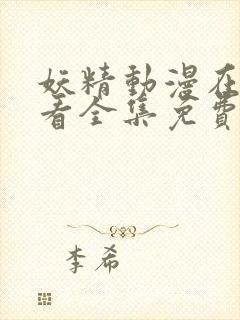 妖精動漫在
看全集免費
李希